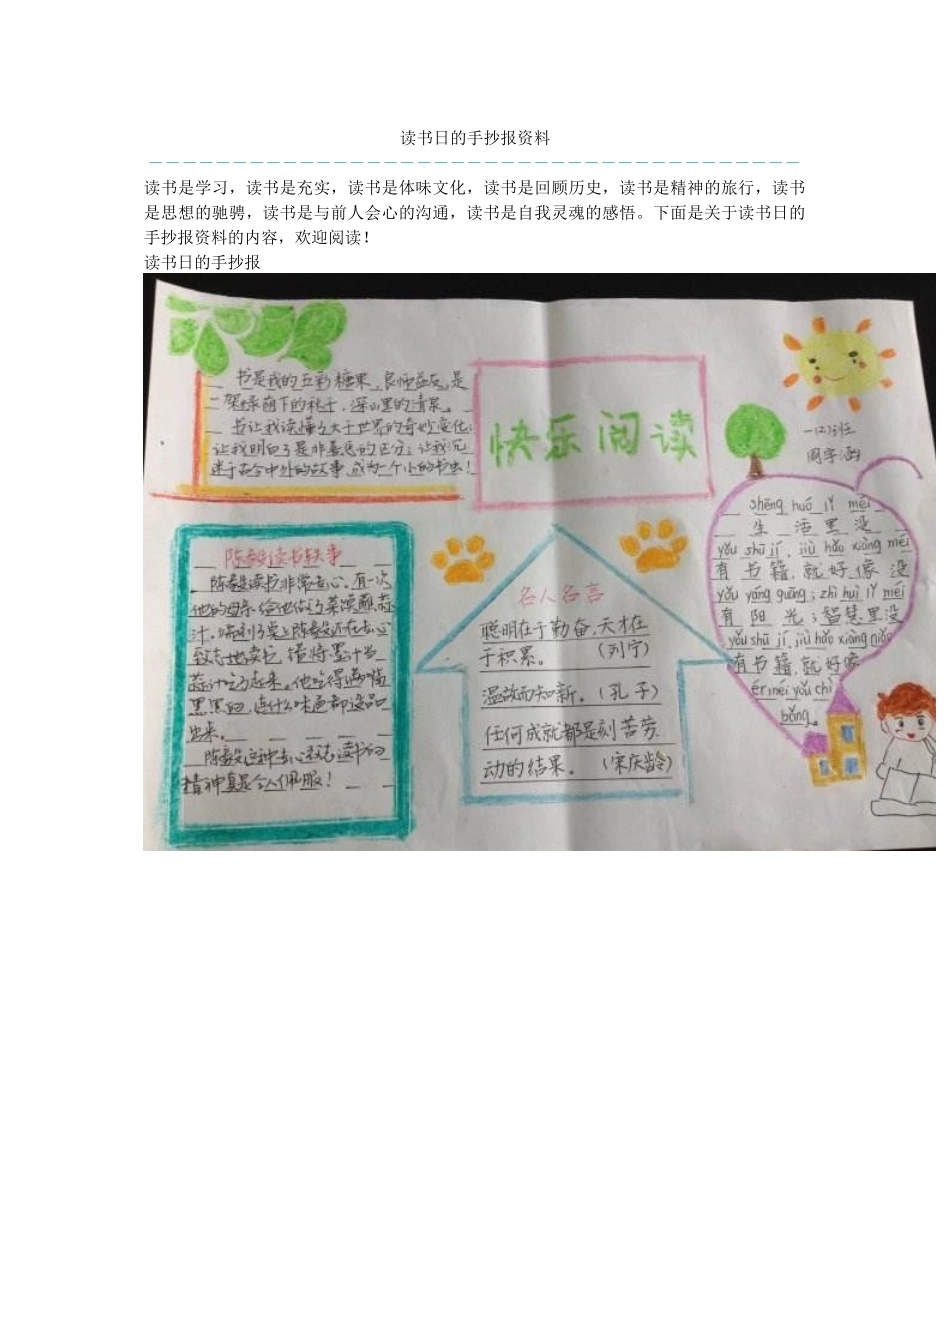 读书日的手抄报资料
读书是学习，读书是充实，读书是体味文化，读书是回顾历史，读书是精神的旅行，读书
是思想的驰骋，读书是与前人会心的沟通，读书是自我灵魂的感悟。下面是关于读书日的
手抄报资料的内容，欢迎阅读！
读书日的手抄报
书是我的五彩糖果，良师益友，是
架绿荫下的秋千，深山里的清泉。
书让我读懂了大千世界的奇妙变化；
让我明白了是非善恶的区分；让我沉
迷于古今中外的故事，成为一个小的书虫！
快乐阅读
一(2)班
周宇涵
陈毅读书轶事
陈毅读书非常专心，有一次
他的母亲给他做了菜馍蘸蒜
汁。端到了桌上陈毅还在专心
致志地读书，错将墨汁当
蒜汁吃了起来。他吃得满嘴
黑黑的，连什么味道都没品
出来。
陈毅这种专心致志读书的
精神真是令人佩服！
名人名言
聪明在于勤奋，天才在
于积累。（列宁）
温故而知新。（孔子）
任何成就都是刻苦劳
动的结果。（宋庆龄）
shēng huó lǐ méi
生活里没
yǒu shū jí，jiù hǎo xiàng méi
有书籍，就好像没
yǒu yáng guāng；zhì huì lǐ méi
有阳光；智慧里没
yǒu shū jí，jiù hǎo xiàng niǎo
有书籍，就好像
ér méi yǒu chì
bǎng。